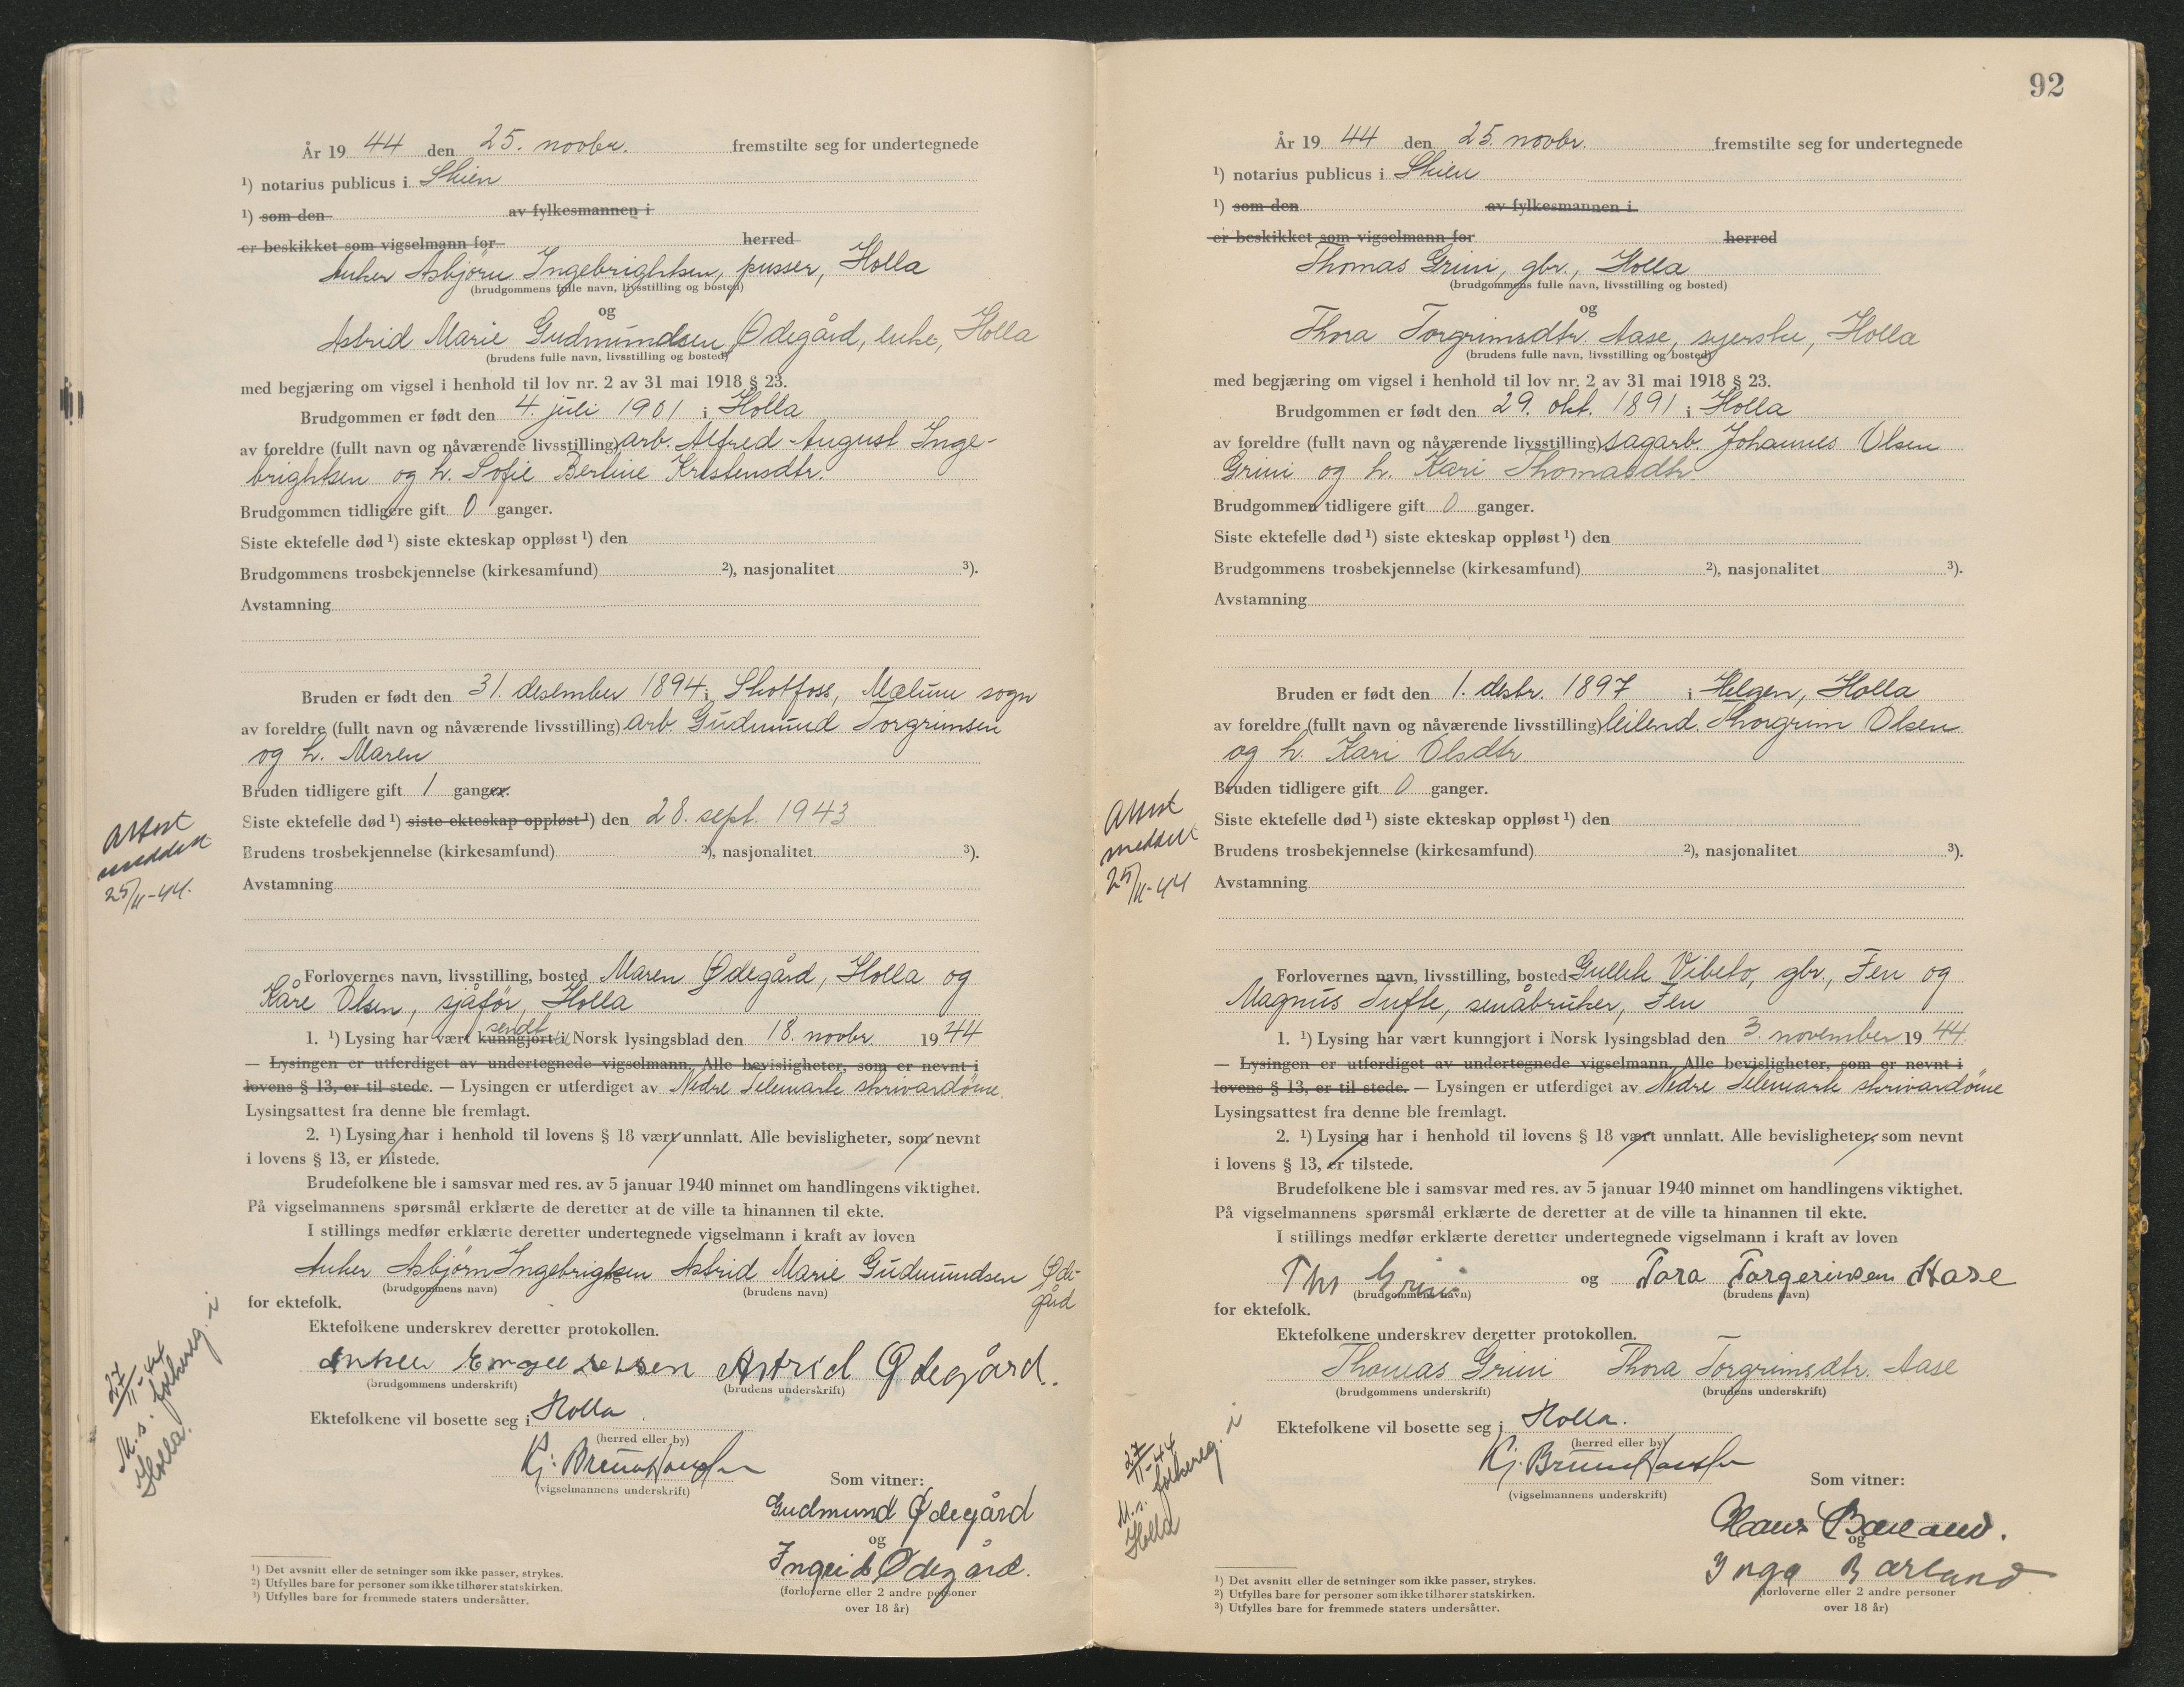 År 19 44 den 25. novbr. fremstilte seg for undertegnede
¹) notarius publicus i Skien
¹) som den av fylkesmannen i
er beskikket som vigselmann for herred
Anker Asbjørn Ingebrightsen, pusser, Holla
(brudgommens fulle navn, livsstilling og bosted)
og
Astrid Marie Gudmundsen Ødegård, enke, Holla
(brudens fulle navn, livsstilling og bosted)
med begjæring om vigsel i henhold til lov nr. 2 av 31 mai 1918 § 23.
Brudgommen er født den 4. juli 1901 i Holla
av foreldre (fullt navn og nåværende livsstilling) arb. Alfred August Inge-
brightsen og h. Sofie Bertine Kristensdtr.
Brudgommen tidligere gift 0 ganger.
Siste ektefelle død ¹) siste ekteskap oppløst ¹) den
Brudgommens trosbekjennelse (kirkesamfund) ²), nasjonalitet ³).
Avstamning
Bruden er født den 31. desember 1894 i Skotfoss, Mælum sogn
av foreldre (fullt navn og nåværende livsstilling) arb. Gudmund Torgrimsen
og h. Maren
Bruden tidligere gift 1 ganger.
Siste ektefelle død ¹) siste ekteskap oppløst ¹) den 28. sept. 1943
Brudens trosbekjennelse (kirkesamfund) ²), nasjonalitet ³).
Avstamning
Attest
meddelt
25/11-44.
Forlovernes navn, livsstilling, bosted Maren Ødegård, Holla og
Kåre Olsen, sjåfør, Holla
sendt
1. ¹) Lysing har vært kunngjort i Norsk lysingsblad den 18. novbr. 1944
— Lysingen er utferdiget av undertegnede vigselmann. Alle bevisligheter, som er nevnt i
lovens § 13, er til stede. — Lysingen er utferdiget av Nedre Telemark skrivardøme.
Lysingsattest fra denne ble fremlagt.
2. ¹) Lysing har i henhold til lovens § 18 vært unnlatt. Alle bevisligheter, som nevnt
i lovens § 13, er tilstede.
Brudefolkene ble i samsvar med res. av 5 januar 1940 minnet om handlingens viktighet.
På vigselmannens spørsmål erklærte de deretter at de ville ta hinannen til ekte.
I stillings medfør erklærte deretter undertegnede vigselmann i kraft av loven
Anker Asbjørn Ingebrigtsen Astrid Marie Gudmundsen Øde-
gård
(brudgommens navn) (brudens navn)
for ektefolk.
Ektefolkene underskrev deretter protokollen.
Astrid Ødegård.
(brudgommens underskrift) (brudens underskrift)
Ektefolkene vil bosette seg i Holla.
(herred eller by)
27/11-44
M. s. folkereg. i
Holla.
Kj.
(vigselmannens underskrift)
Som vitner:
Gudmund Ødegård
og
Ingrid Ødegård.
(forloverne eller 2 andre personer
over 18 år)
¹) Det avsnitt eller de setninger som ikke passer, strykes.
²) Utfylles bare for personer som ikke tilhører statskirken.
³) Utfylles bare for fremmede staters undersåtter.
92
År 19 44 den 25. novbr. fremstilte seg for undertegnede
¹) notarius publicus i Skien
¹) som den av fylkesmannen i
er beskikket som vigselmann for herred
Thomas Grini, gbr., Holla
(brudgommens fulle navn, livsstilling og bosted)
og
Thora Torgrimsdtr. Aase, syerske, Holla
(brudens fulle navn, livsstilling og bosted)
med begjæring om vigsel i henhold til lov nr. 2 av 31 mai 1918 § 23.
Brudgommen er født den 29. okt. 1891 i Holla
av foreldre (fullt navn og nåværende livsstilling) sagarb. Johannes Olsen
Grini og h. Kari Thomasdtr.
Brudgommen tidligere gift 0 ganger.
Siste ektefelle død ¹) siste ekteskap oppløst ¹) den
Brudgommens trosbekjennelse (kirkesamfund) ²), nasjonalitet ³).
Avstamning
Bruden er født den 1. desbr. 1897 i Helgen, Holla
av foreldre (fullt navn og nåværende livsstilling) leilend. Thorgrim Olsen
og h. Kari Olsdtr.
Bruden tidligere gift 0 ganger.
Siste ektefelle død ¹) siste ekteskap oppløst ¹) den
Brudens trosbekjennelse (kirkesamfund) ²), nasjonalitet ³).
Avstamning
Attest
meddelt
25/11-44
Forlovernes navn, livsstilling, bosted Gullek Vibeto, gbr., Fen og
Magnus Tufte, småbruker, Fen
1. ¹) Lysing har vært kunngjort i Norsk lysingsblad den 3. november 1944.
— Lysingen er utferdiget av undertegnede vigselmann. Alle bevisligheter, som er nevnt i
lovens § 13, er til stede. — Lysingen er utferdiget av Nedre Telemark skrivardøme
Lysingsattest fra denne ble fremlagt.
2. ¹) Lysing har i henhold til lovens § 18 vært unnlatt. Alle bevisligheter, som nevnt
i lovens § 13, er tilstede.
Brudefolkene ble i samsvar med res. av 5 januar 1940 minnet om handlingens viktighet.
På vigselmannens spørsmål erklærte de deretter at de ville ta hinannen til ekte.
I stillings medfør erklærte deretter undertegnede vigselmann i kraft av loven
Ths Grini og Tora Torgerinsen Aase
(brudgommens navn) (brudens navn)
for ektefolk.
Ektefolkene underskrev deretter protokollen.
Thomas Grini Thora Torgrimsdtr. Aase
(brudgommens underskrift) (brudens underskrift)
Ektefolkene vil bosette seg i Holla.
(herred eller by)
27/11-44
M. s. folkereg. i
Holla
Kj.
(vigselmannens underskrift)
Som vitner:
Hans Barland.
og
Inga Barland
(forloverne eller 2 andre personer
over 18 år)
¹) Det avsnitt eller de setninger som ikke passer, strykes.
²) Utfylles bare for personer som ikke tilhører statskirken.
³) Utfylles bare for fremmede staters undersåtter.